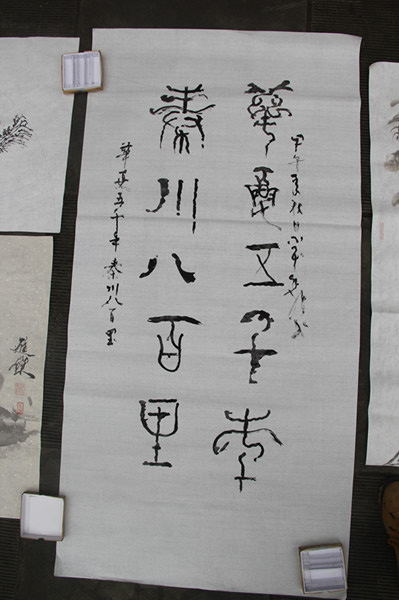 甲午季秋日
華夏五千年
秦川八百里
華夏五千年 秦川八百里